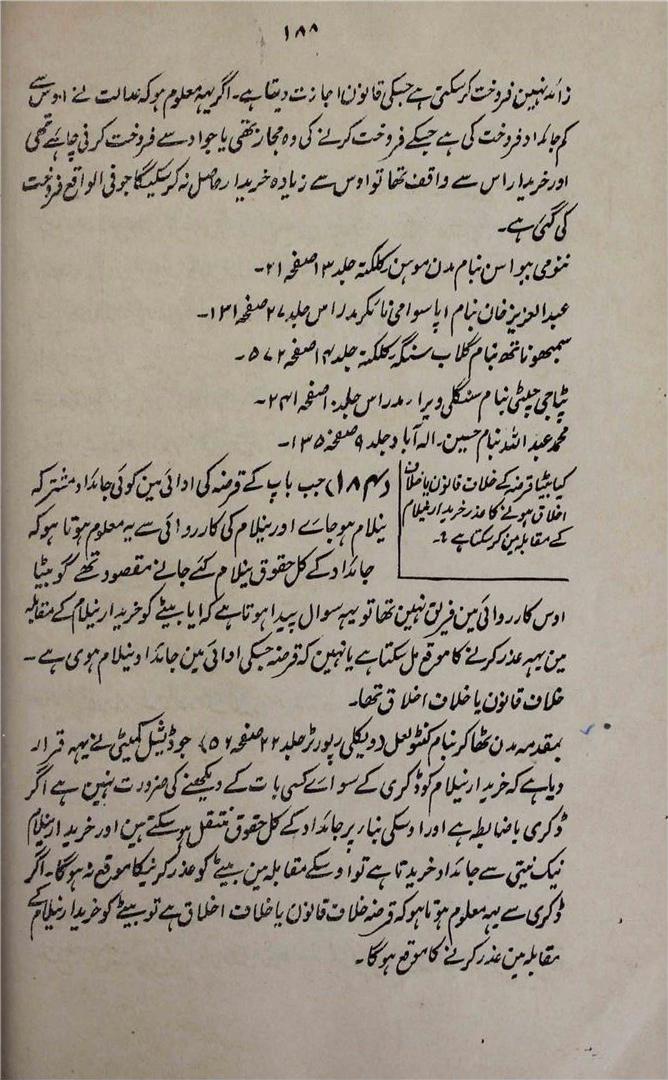 ۱۸۸
زائد نہین فروخت کرسکتی ہے جسکی قانون اجازت دیتا ہے۔ اگر یہہ معلوم ہو کہ عدالت نے اوس سے
کم جائداد فروخت کی ہے جسکے فروخت کرنے کی وہ مجاز تھی یا جو اوسے فروخت کرنی چاہئے تھی
اور خریدار اس سے واقف تھا تو اوس سے زیادہ خریدار حاصل نہ کرسکیگا جو فی الواقع فروخت
کی گئی ہے۔
ننومی ببواسن بنام مدن موہن۔ کلکتہ جلد ۱۳ صفحہ ۲۱۔
عبدالعزیز خان بنام اپاسوامی نائکر مدراس جلد ۲۷ صفحہ ۱۳۱۔
سمبھوناتھ بنام گلاب سنگہ۔ کلکتہ جلد ۱۴ صفحہ ۵۷۲۔
پٹاچی چیٹی بنام سنگلی ویرا۔ مدراس جلد ۱۰ صفحہ ۲۴۱۔
محمد عبداللہ بنام حسین۔ الہ آباد جلد ۹ صفحہ ۱۳۵۔
کیا بیٹا قرضہ کے خلاف قانون یا خلاف
اخلاق ہونے کا عذر خریدار نیلام
کے مقابلہ مین کرسکتا ہے ؟۔
(۱۸۴) جب باپ کے قرضہ کی ادائی مین کوئی جائداد مشترکہ
نیلام ہو جاے اور نیلام کی کارروائی سے یہ معلوم ہوتا ہو کہ
جائداد کے کل حقوق نیلام کئے جانے مقصود تھے گو بیٹا
اوس کارروائی مین فریق نہین تھا تو یہہ سوال پیدا ہوتا ہے کہ آیا بیٹے کو خریدار نیلام کے مقابلہ
مین یہہ عذر کرنے کا موقع مل سکتا ہے یا نہین کہ قرضہ جسکی ادائی مین جائداد نیلام ہوی ہے۔
خلاف قانون یا خلاف اخلاق تھا۔
بمقدمہ مدن ٹھاکر بنام کنٹولعل (ویکلی رپورٹر جلد ۲۲ صفحہ ۵۶) جوڈیشل کمیٹی نے یہہ قرار
دیا ہے کہ خریدار نیلام کو ڈکری کے سواے کسی بات کے دیکھنے کی ضرورت نہین ہے اگر
ڈکری باضابطہ ہے اور اوسکی بنا پر جائداد کے کل حقوق منتقل ہوسکتے ہین اور خریدار نیلام
نیک نیتی سے جائداد خریدتا ہے تو اوسکے مقابلہ مین بیٹے کو عذر کرنیکا موقع نہ ہوگا۔ اگر
ڈکری سے یہہ معلوم ہوتا ہو کہ قرضہ خلاف قانون یا خلاف اخلاق ہے تو بیٹے کو خریدار نیلام کے
مقابلہ مین عذر کرنے کا موقع ہوگا۔